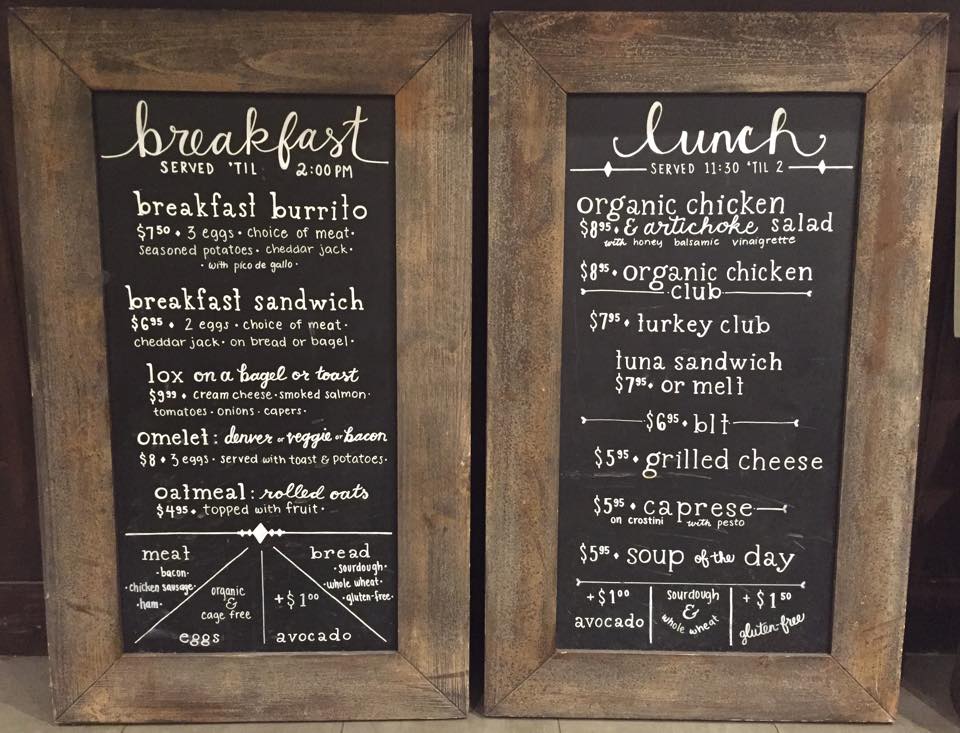 breakfast
SERVED 'TIL 2:00 PM
breakfast burrito
$7⁵⁰ • 3 eggs • choice of meat •
seasoned potatoes • cheddar jack •
• with pico de gallo •
breakfast sandwich
$6⁹⁵ • 2 eggs • choice of meat •
cheddar jack • on bread or bagel •
lox on a bagel or toast
$9⁹⁹ • cream cheese • smoked salmon •
tomatoes • onions • capers •
omelet: denver or veggie or bacon
$8 • 3 eggs • served with toast & potatoes •
oatmeal: rolled oats
$4⁹⁵ • topped with fruit •
meat
• bacon •
• chicken sausage •
• ham •
organic
&
cage free
eggs
+$1⁰⁰
avocado
bread
• sourdough •
• whole wheat •
• gluten-free •
lunch
SERVED 11:30 'TIL 2
organic chicken
$8⁹⁵ • & artichoke salad
with honey balsamic vinaigrette
$8⁹⁵ • organic chicken
club
$7⁹⁵ • turkey club
tuna sandwich
$7⁹⁵ • or melt
$6⁹⁵ • blt
$5⁹⁵ • grilled cheese
$5⁹⁵ • caprese
on crostini with pesto
$5⁹⁵ • soup of the day
+$1⁰⁰
avocado
sourdough
&
whole wheat
+$1⁵⁰
gluten-free